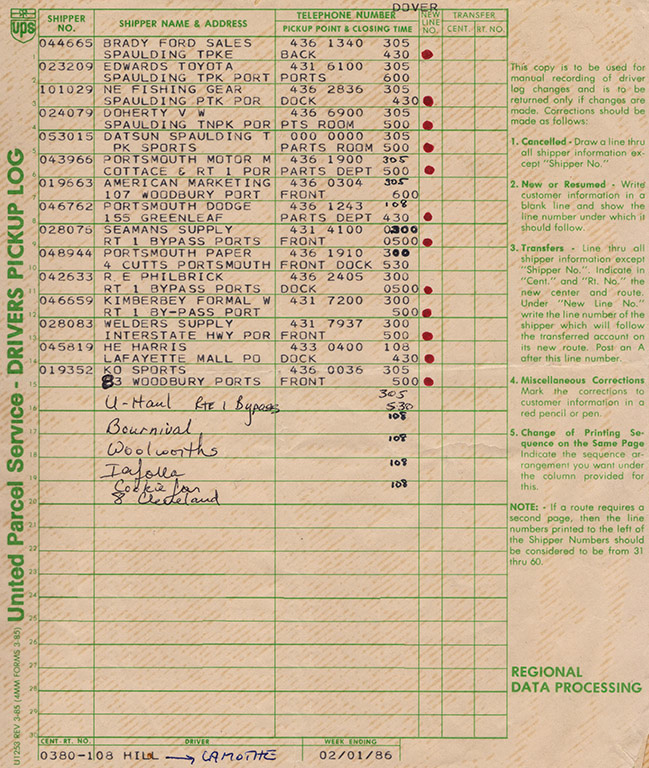 DOVER
ups
SHIPPER NO. SHIPPER NAME & ADDRESS TELEPHONE NUMBER NEW LINE NO. TRANSFER
PICKUP POINT & CLOSING TIME CENT. RT. NO.
044665 BRADY FORD SALES 436 1340 305
1 SPAULDING TPKE BACK 430
023209 EDWARDS TOYOTA 431 6100 305
2 SPAULDING TPK PORT PORTS 600
101029 NE FISHING GEAR 436 2836 305
3 SPAULDING PTK POR DOCK 430
024079 DOHERTY V W 436 6900 305
4 SPAULDING TNPK POR PTS ROOM 500
053015 DATSUN SPAULDING T 000 0000 305
5 PK SPORTS PARTS ROOM 500
043966 PORTSMOUTH MOTOR M 436 1900 305
6 COTTACE & RT 1 POR PARTS DEPT 500
019663 AMERICAN MARKETING 436 0304 305
7 107 WOODBURY PORT FRONT 600
046762 PORTSMOUTH DODGE 436 1243 108
8 155 GREENLEAF PARTS DEPT 430
028076 SEAMANS SUPPLY 431 4100 0300
9 RT 1 BYPASS PORTS FRONT 0500
048944 PORTSMOUTH PAPER 436 1910 300
10 4 CUTTS PORTSMOUTH FRONT DOCK 530
042633 R E PHILBRICK 436 2405 300
11 RT 1 BYPASS PORTS DOCK 0500
046659 KIMBERBEY FORMAL W 431 7200 300
12 RT 1 BY-PASS PORT 500
028083 WELDERS SUPPLY 431 7937 300
13 INTERSTATE HWY POR FRONT 500
045819 HE HARRIS 433 0400 108
14 LAFAYETTE MALL PO DOCK 430
019352 KO SPORTS 436 0036 305
15 83 WOODBURY PORTS FRONT 500
305
16 U-Haul RTE 1 Bypass 530
108
17 Bournival
108
18 Woolworths
108
19 Iafolla
Cookie Jar 108
20 8 Cleveland
21
22
23
24
25
26
27
28
29
30
CENT.-RT. NO. DRIVER WEEK ENDING
0380-108 HILL → LAMOTHE 02/01/86
United Parcel Service - DRIVERS PICKUP LOG
U1253 REV 3-85 (4MM FORMS 3-85)
This copy is to be used for
manual recording of driver
log changes and is to be
returned only if changes are
made. Corrections should be
made as follows:
1. Cancelled - Draw a line thru
all shipper information ex-
cept "Shipper No."
2. New or Resumed - Write
customer information in a
blank line and show the
line number under which it
should follow.
3. Transfers - Line thru all
shipper information except
"Shipper No.". Indicate in
"Cent." and "Rt. No." the
new center and route.
Under "New Line No."
write the line number of the
shipper which will follow
the transferred account on
its new route. Post an A
after this line number.
4. Miscellaneous Corrections
Mark the corrections to
customer information in a
red pencil or pen.
5. Change of Printing Se-
quence on the Same Page
Indicate the sequence ar-
rangement you want under
the column provided for
this.
NOTE: - If a route requires a
second page, then the line
numbers printed to the left of
the Shipper Numbers should
be considered to be from 31
thru 60.
REGIONAL
DATA PROCESSING